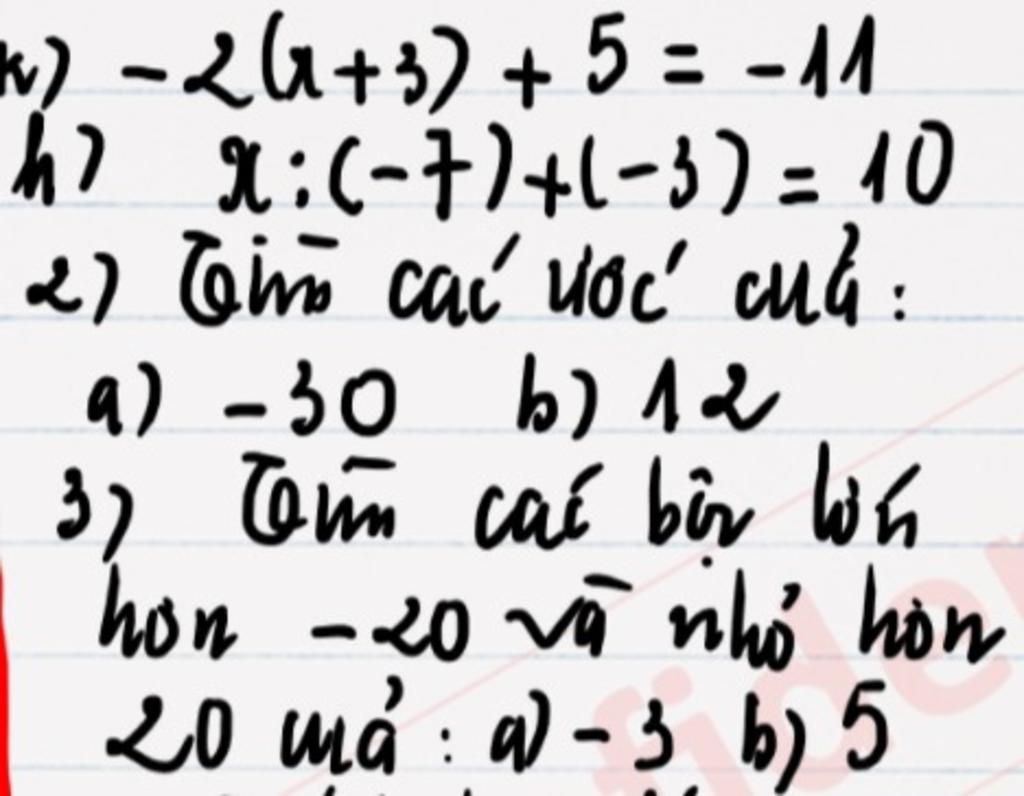 k) -2(x+3) + 5 = -11
h) x : (-7) + (-3) = 10
2) Tìm các ước của :
a) -30 b) 12
3) Tìm các bội lớn
hơn -20 và nhỏ hơn
20 của : a) -3 b) 5